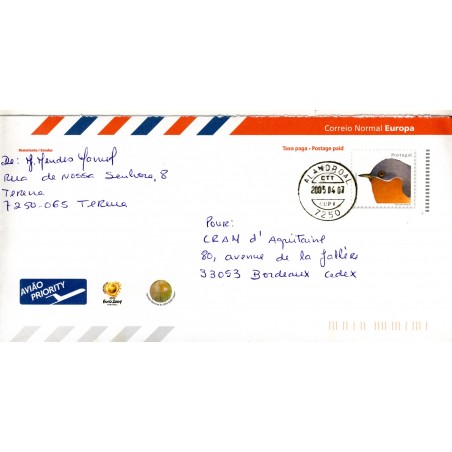 Correio Normal Europa
Remetente / Sender
Taxa paga • Postage paid
Portugal
De: M. Mendes
Rua de Nossa Senhora, 8
Terena
7250-065 Terena
ALANDROAL
CTT
2005 04 07
7250
Pour:
CRAM d'Aquitaine
80, avenue de la Jallère
33053 Bordeaux Cedex
AVIÃO
PRIORITY
Euro2004